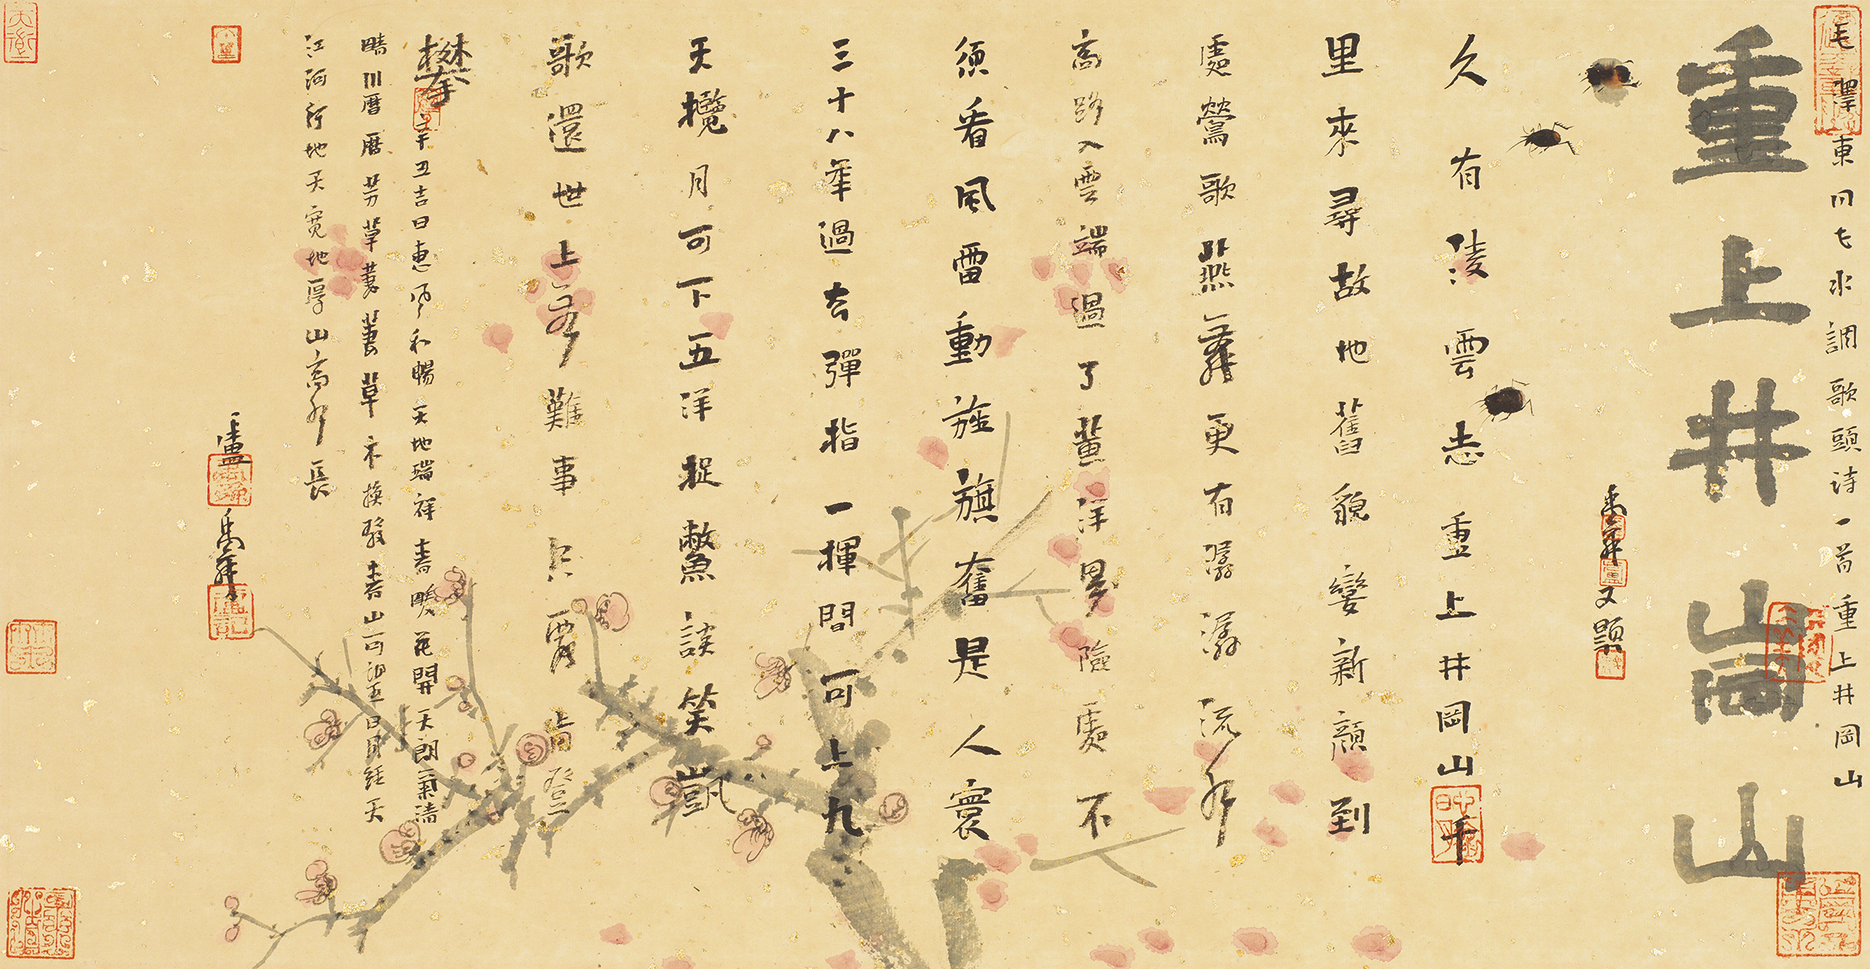 毛澤東同志水調歌頭诗一首重上井岡山
重上井崗山
禹舜又題
久有淩雲志重上井岡山千
里來尋故地舊貌變新顏到
處鶯歌燕舞更有潺潺流水
高路入雲端過了黄洋界險處不
須看風雷動旌旗奮是人寰
三十八年過去彈指一揮間可上九
天攬月可下五洋捉鱉談笑凱
歌還世上無難事只要肯登
攀 辛丑吉日惠風和暢天地瑞祥春暖花開天朗氣清
晴川曆曆芳草萋萋草木換發春山可望日月經天
江河行地天寬地厚山高水長
盧禹舜